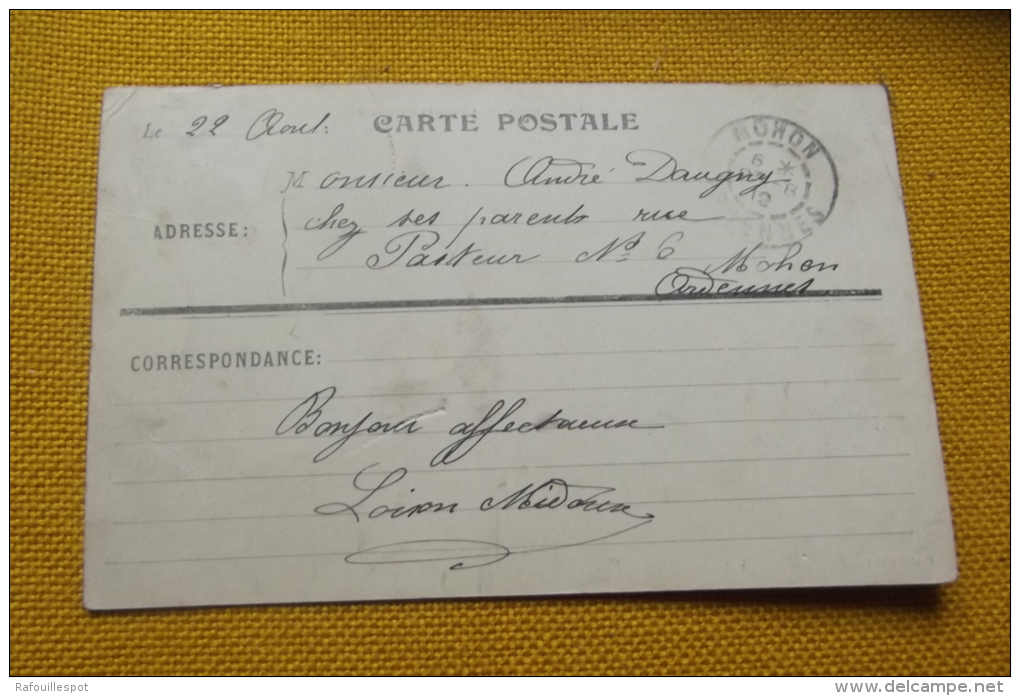 Le 22 Aout. CARTE POSTALE
MOHON
6 *
Monsieur. André Daugny
chez ses parents rue
ADRESSE:
Pasteur No 6 Mohon
Ardennes
CORRESPONDANCE:
Bonjour affectueux
Rafouillespot
www.delcampe.net